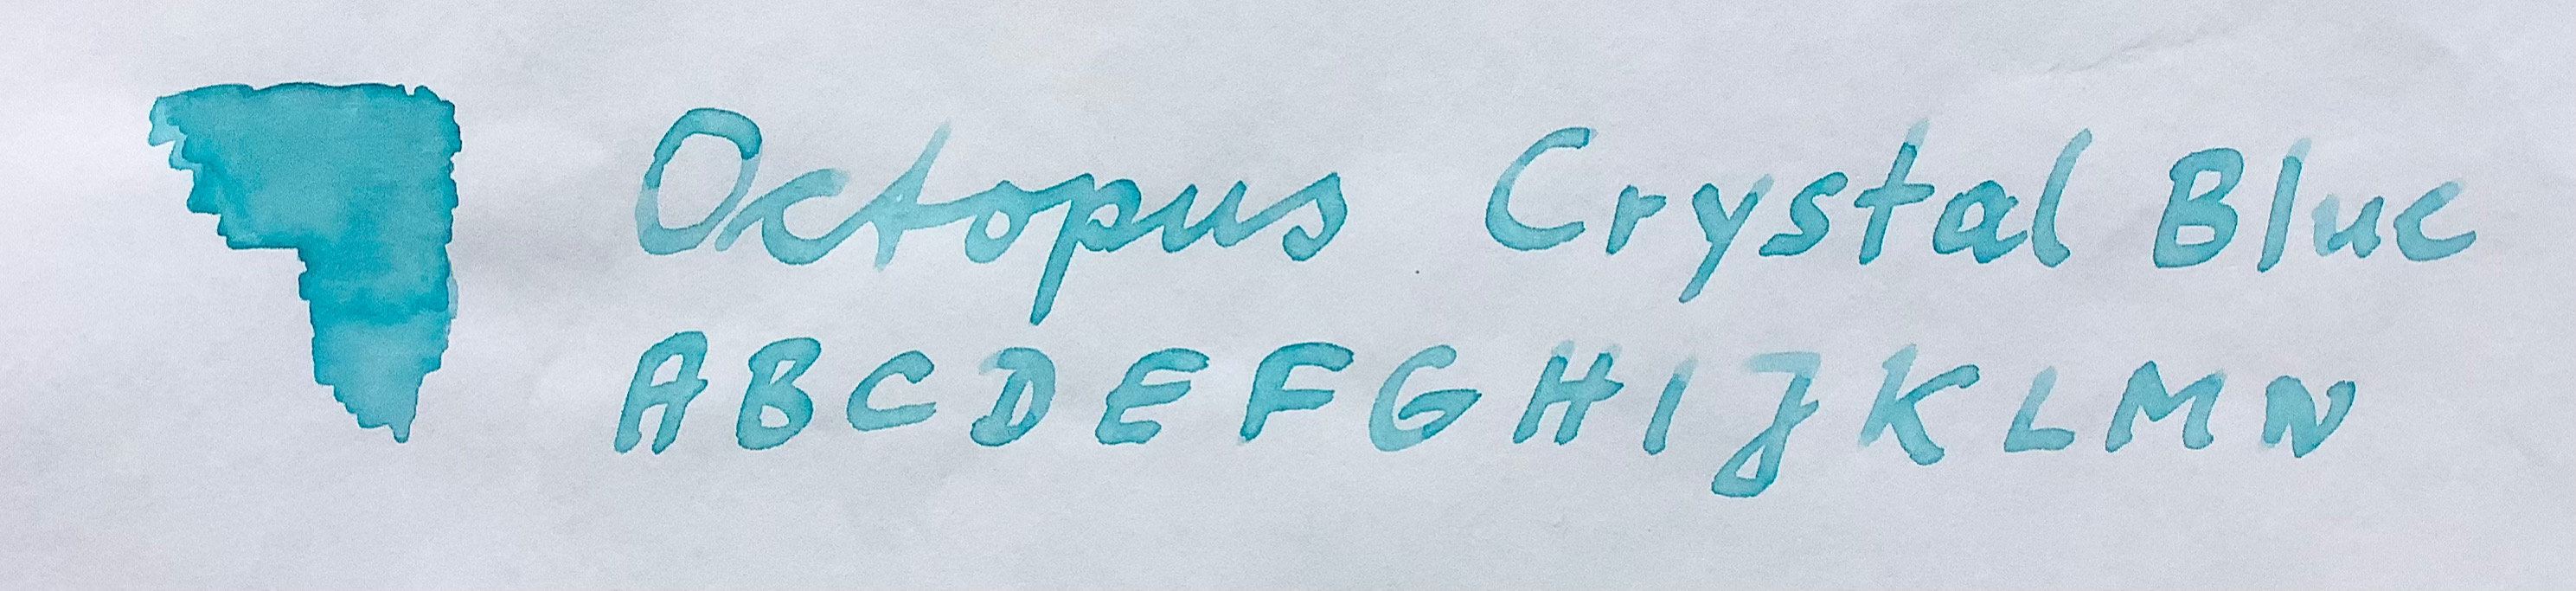 Octopus Crystal Blue
A B C D E F G H I J K L M N